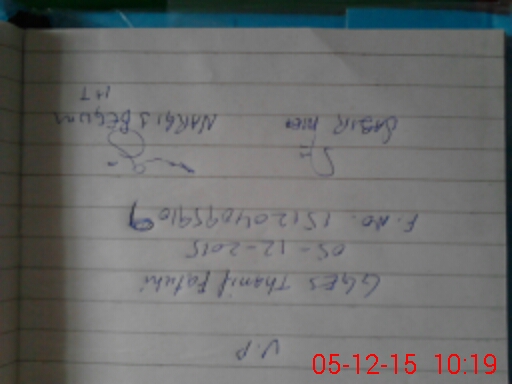 V.P
GGES Thanil Fatuhi
05-12-2015
F.No. 1512040959109
SABIR NARGIS BEGUM
HT
05-12-15 10:19